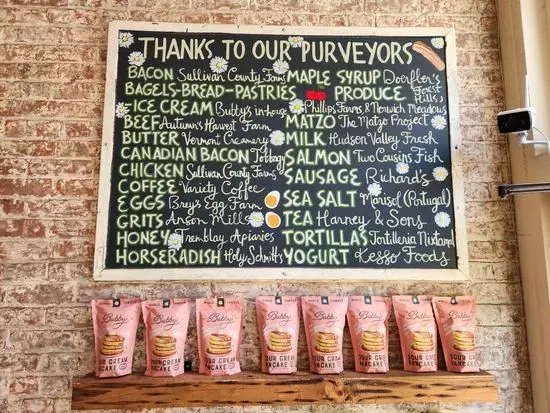 THANKS TO OUR PURVEYORS
BACON Sullivan County Farms
BAGELS-BREAD-PASTRIES
ICE CREAM Bubby's in-house
BEEF Autumn's Harvest Farm
BUTTER Vermont Creamery
CANADIAN BACON Tobbagi
CHICKEN Sullivan County Farms
COFFEE Variety Coffee
EGGS Brey's Egg Farm
GRITS Anson Mills
HONEY Tremblay Apiaries
HORSERADISH Holy Schmitts
MAPLE SYRUP Doerfler's
PRODUCE Forest Hills,
Phillips Farms, & Norwich Meadows
MATZO The Matzo Project
MILK Hudson Valley Fresh
SALMON Two Cousins Fish
SAUSAGE Richard's
SEA SALT Marisol (Portugal)
TEA Harney & Sons
TORTILLAS Tortilleria Nixtamal
YOGURT Kesso Foods
Bubby's
SOUR CREAM
PANCAKE
Bubby's
SOUR CREAM
PANCAKE
Bubby's
SOUR CREAM
PANCAKE
Bubby's
SOUR CREAM
PANCAKE
Bubby's
SOUR CREAM
PANCAKE
Bubby's
SOUR CREAM
PANCAKE
Bubby's
SOUR CREAM
PANCAKE
Bubby's
SOUR CREAM
PANCAKE